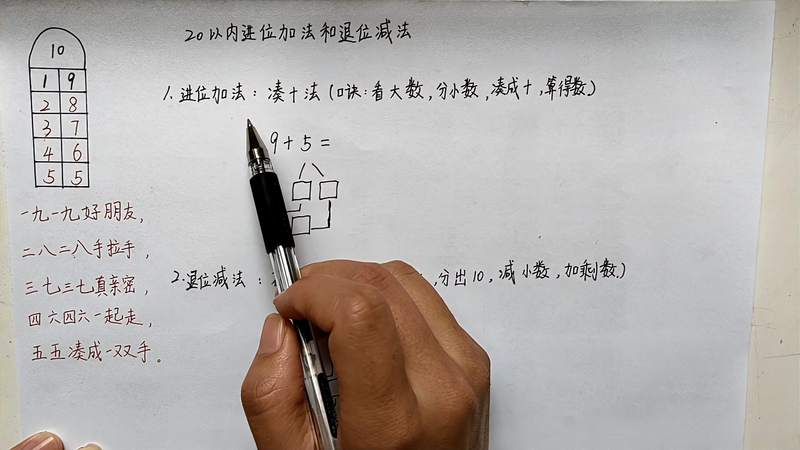 20以内进位加法和退位减法
10
1 9
2 8
3 7
4 6
5 5
一九一九好朋友,
二八二八手拉手,
三七三七真亲密,
四六四六一起走,
五五凑成一双手。
1.进位加法:凑十法(口诀:看大数,分小数,凑成十,算得数)
9+5=
2.退位减法:
,分出10,减小数,加剩数.)